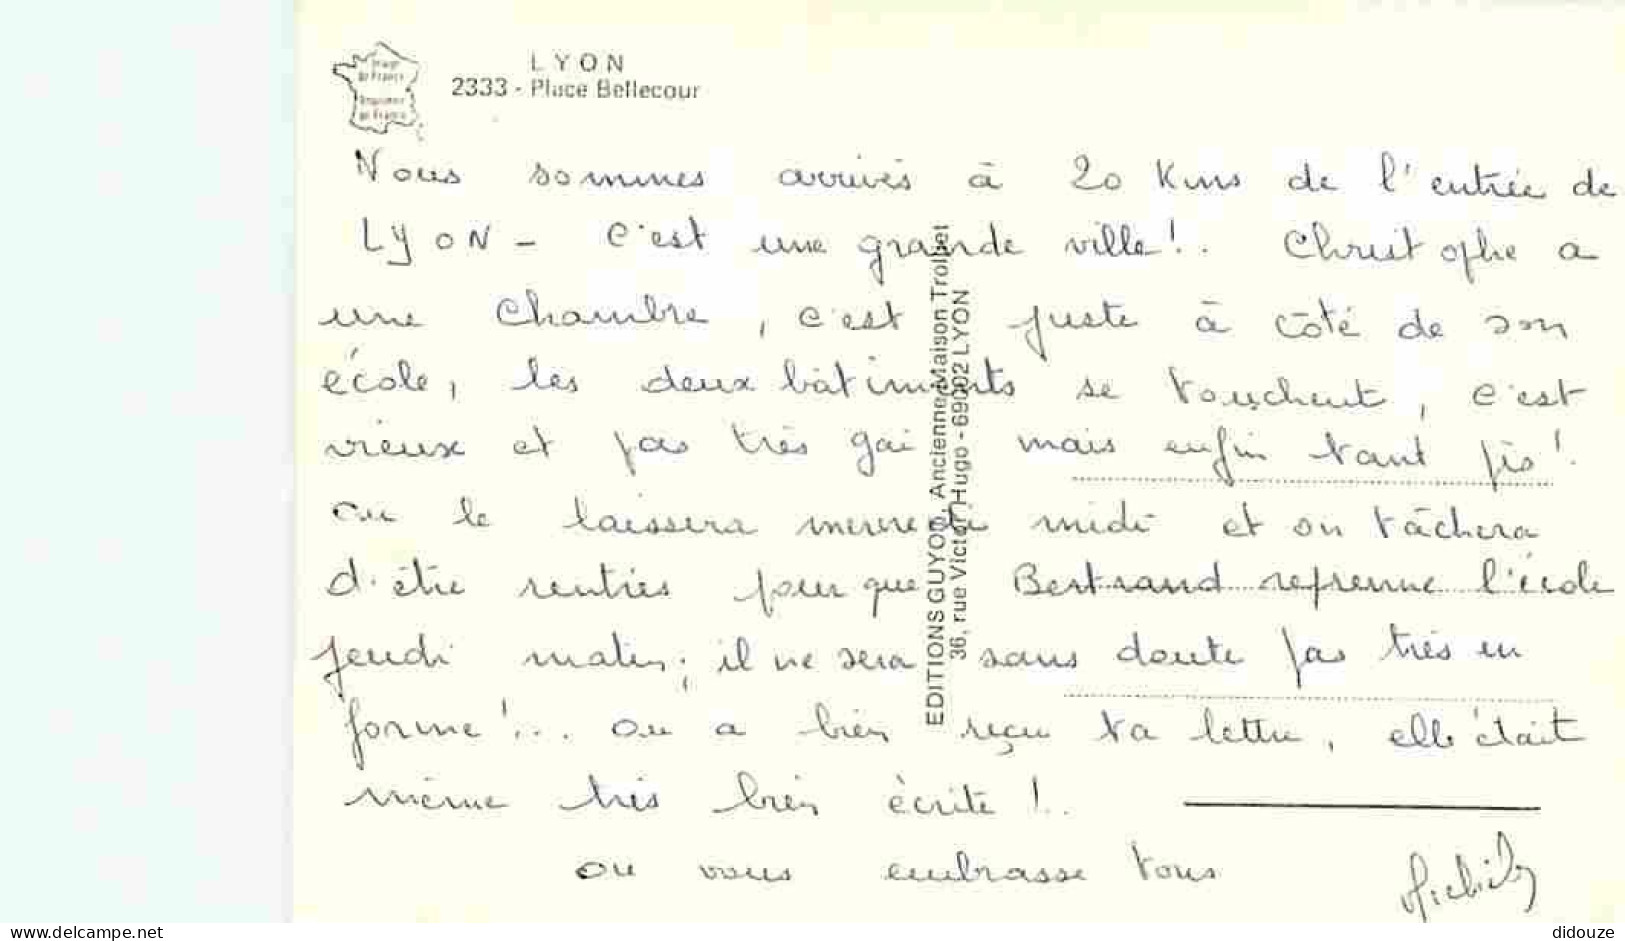 LYON
2333 - Place Bellecour
Image de France
Nous sommes arrivés à 20 Kms de l'entrée de
LYON - C'est une grande ville !.. Christophe a
une chambre, c'est juste à côté de son
école, les deux bâtiments se touchent, c'est
vieux et pas très gai mais enfin tant pis !
on le laissera mercredi midi et on tâchera
d'être rentrés pour que Bertrand reprenne l'école
jeudi matin ; il ne sera sans doute pas très en
forme !... on a bien reçu ta lettre, elle était
même très bien écrite !..
on vous embrasse tous
EDITIONS GUYON, Ancienne Maison Trolliet
36, rue Victor Hugo - 69002 LYON
www.delcampe.net
didouze